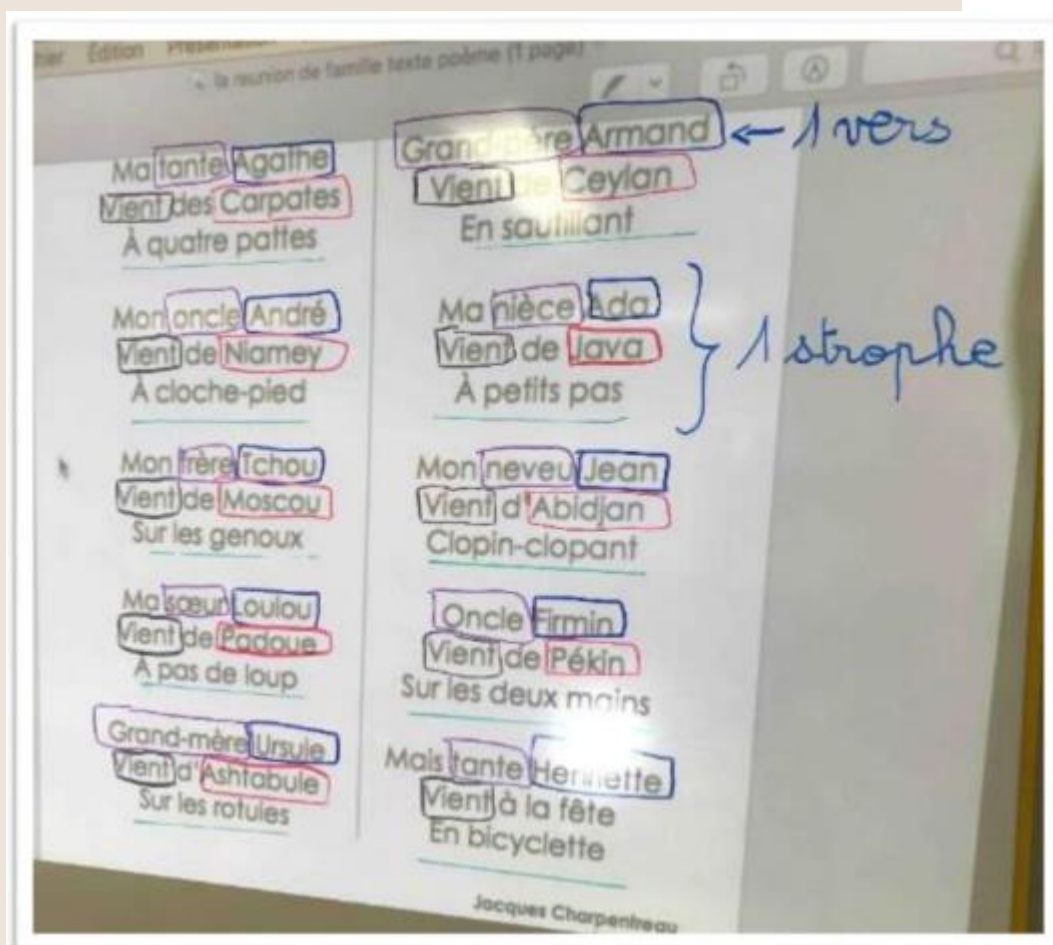 Édition
la reunion de famille texte poème (1 page)
Ma tante Agathe
Vient des Carpates
À quatre pattes
Mon oncle André
Vient de Niamey
À cloche-pied
Mon frère Tchou
Vient de Moscou
Sur les genoux
Ma sœur Loulou
Vient de Padoue
À pas de loup
Grand-mère Ursule
Vient d'Ashtabule
Sur les rotules
Grand-père Armand
Vient de Ceylan
En sautillant
← 1 vers
Ma nièce Ada
Vient de Java
À petits pas
1 strophe
Mon neveu Jean
Vient d'Abidjan
Clopin-clopant
Oncle Firmin
Vient de Pékin
Sur les deux mains
Mais tante Henriette
Vient à la fête
En bicyclette
Jacques Charpentreau